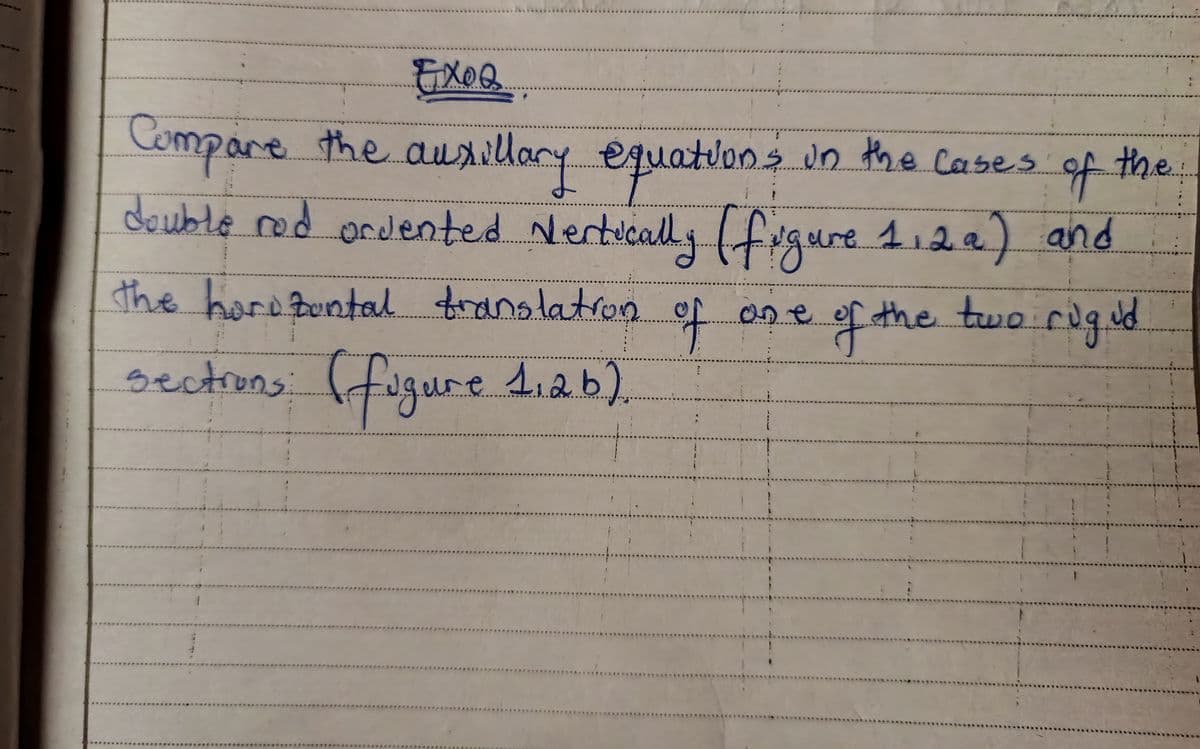 Exo2.
Compare the auxillary equations in the cases of the
double rod oriented vertically (figure 1.2a) and
the horizontal translation of one of the two rigid
sections (figure 1.2b).